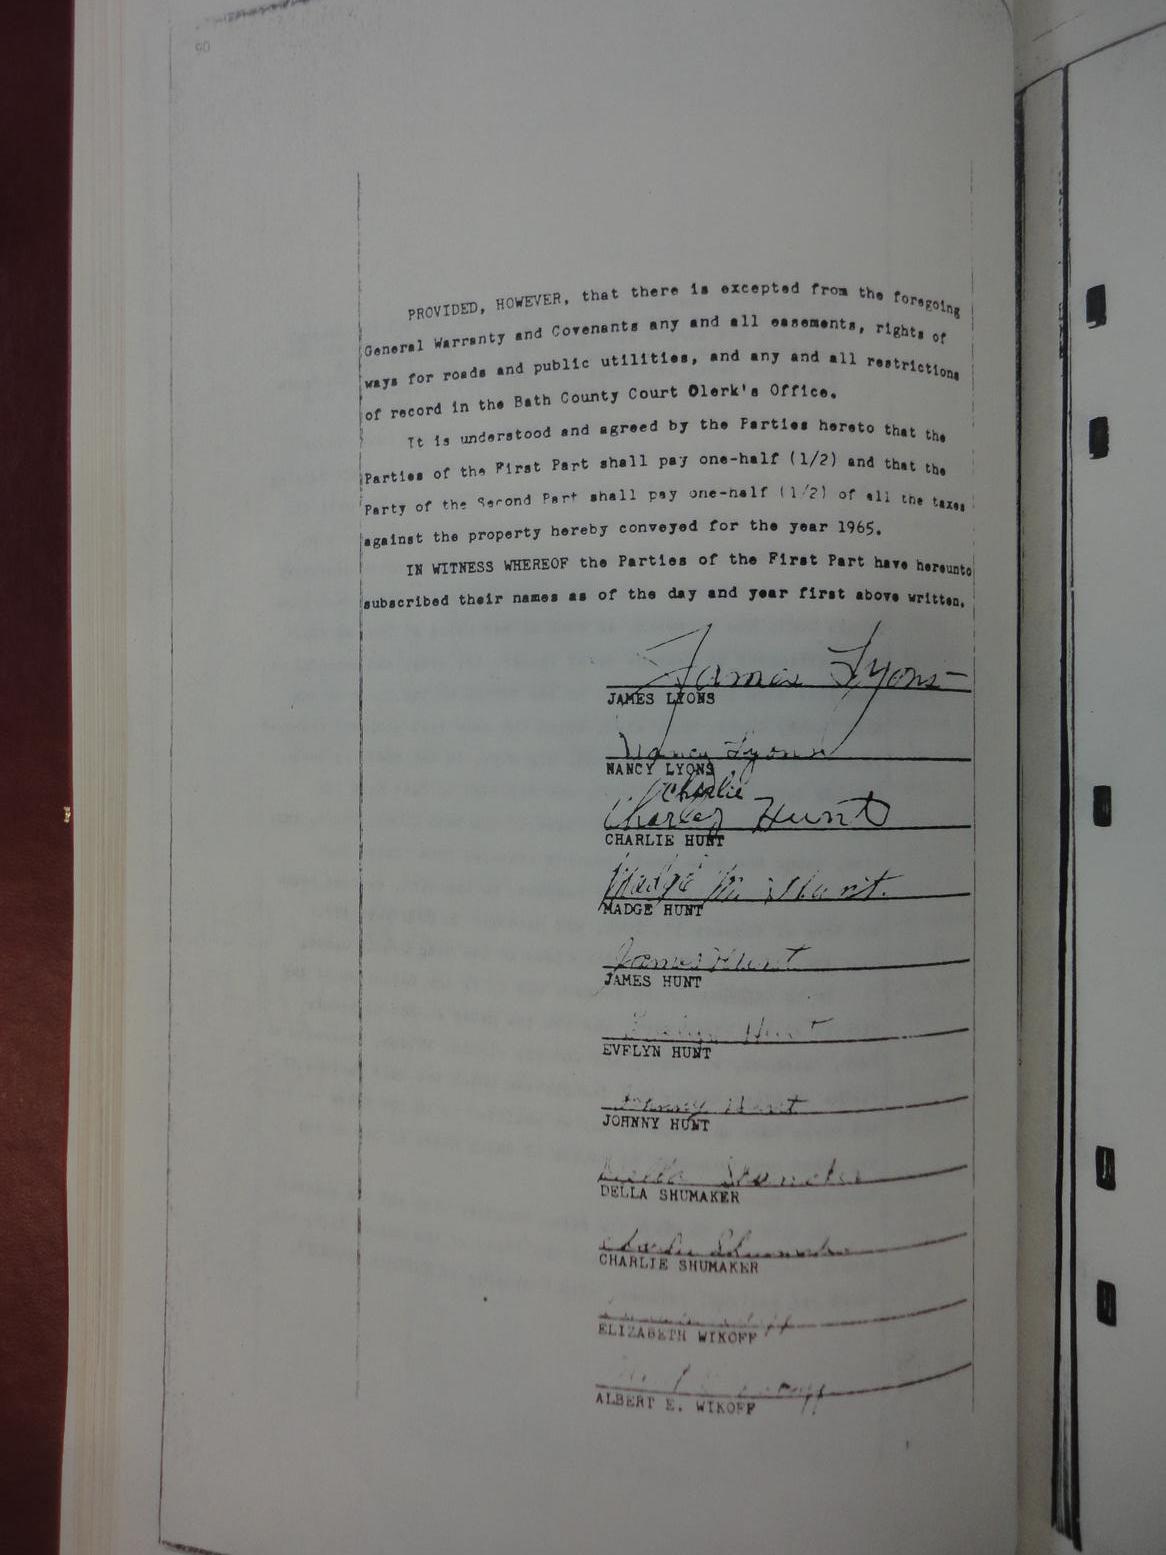 90
PROVIDED, HOWEVER, that there is excepted from the foregoing
General Warranty and Covenants any and all easements, rights of
ways for roads and public utilities, and any and all restrictions
of record in the Bath County Court Olerk's Office.
It is understood and agreed by the Parties hereto that the
Parties of the First Part shall pay one-half (1/2) and that the
Party of the Second Part shall pay one-half (1/2) of all the taxes
against the property hereby conveyed for the year 1965.
IN WITNESS WHEREOF the Parties of the First Part have hereunto
subscribed their names as of the day and year first above written.
James Lyons
JAMES LYONS
Nancy Lyons
NANCY LYONS
Charlie
Charley Hunt
CHARLIE HUNT
Madge M. Hunt.
MADGE HUNT
James Hunt
JAMES HUNT
Evelyn Hunt
EVELYN HUNT
Johnny Hunt
JOHNNY HUNT
Della Shumaker
DELLA SHUMAKER
Charlie Shumaker
CHARLIE SHUMAKER
ELIZABETH WIKOFF
ALBERT E. WIKOFF